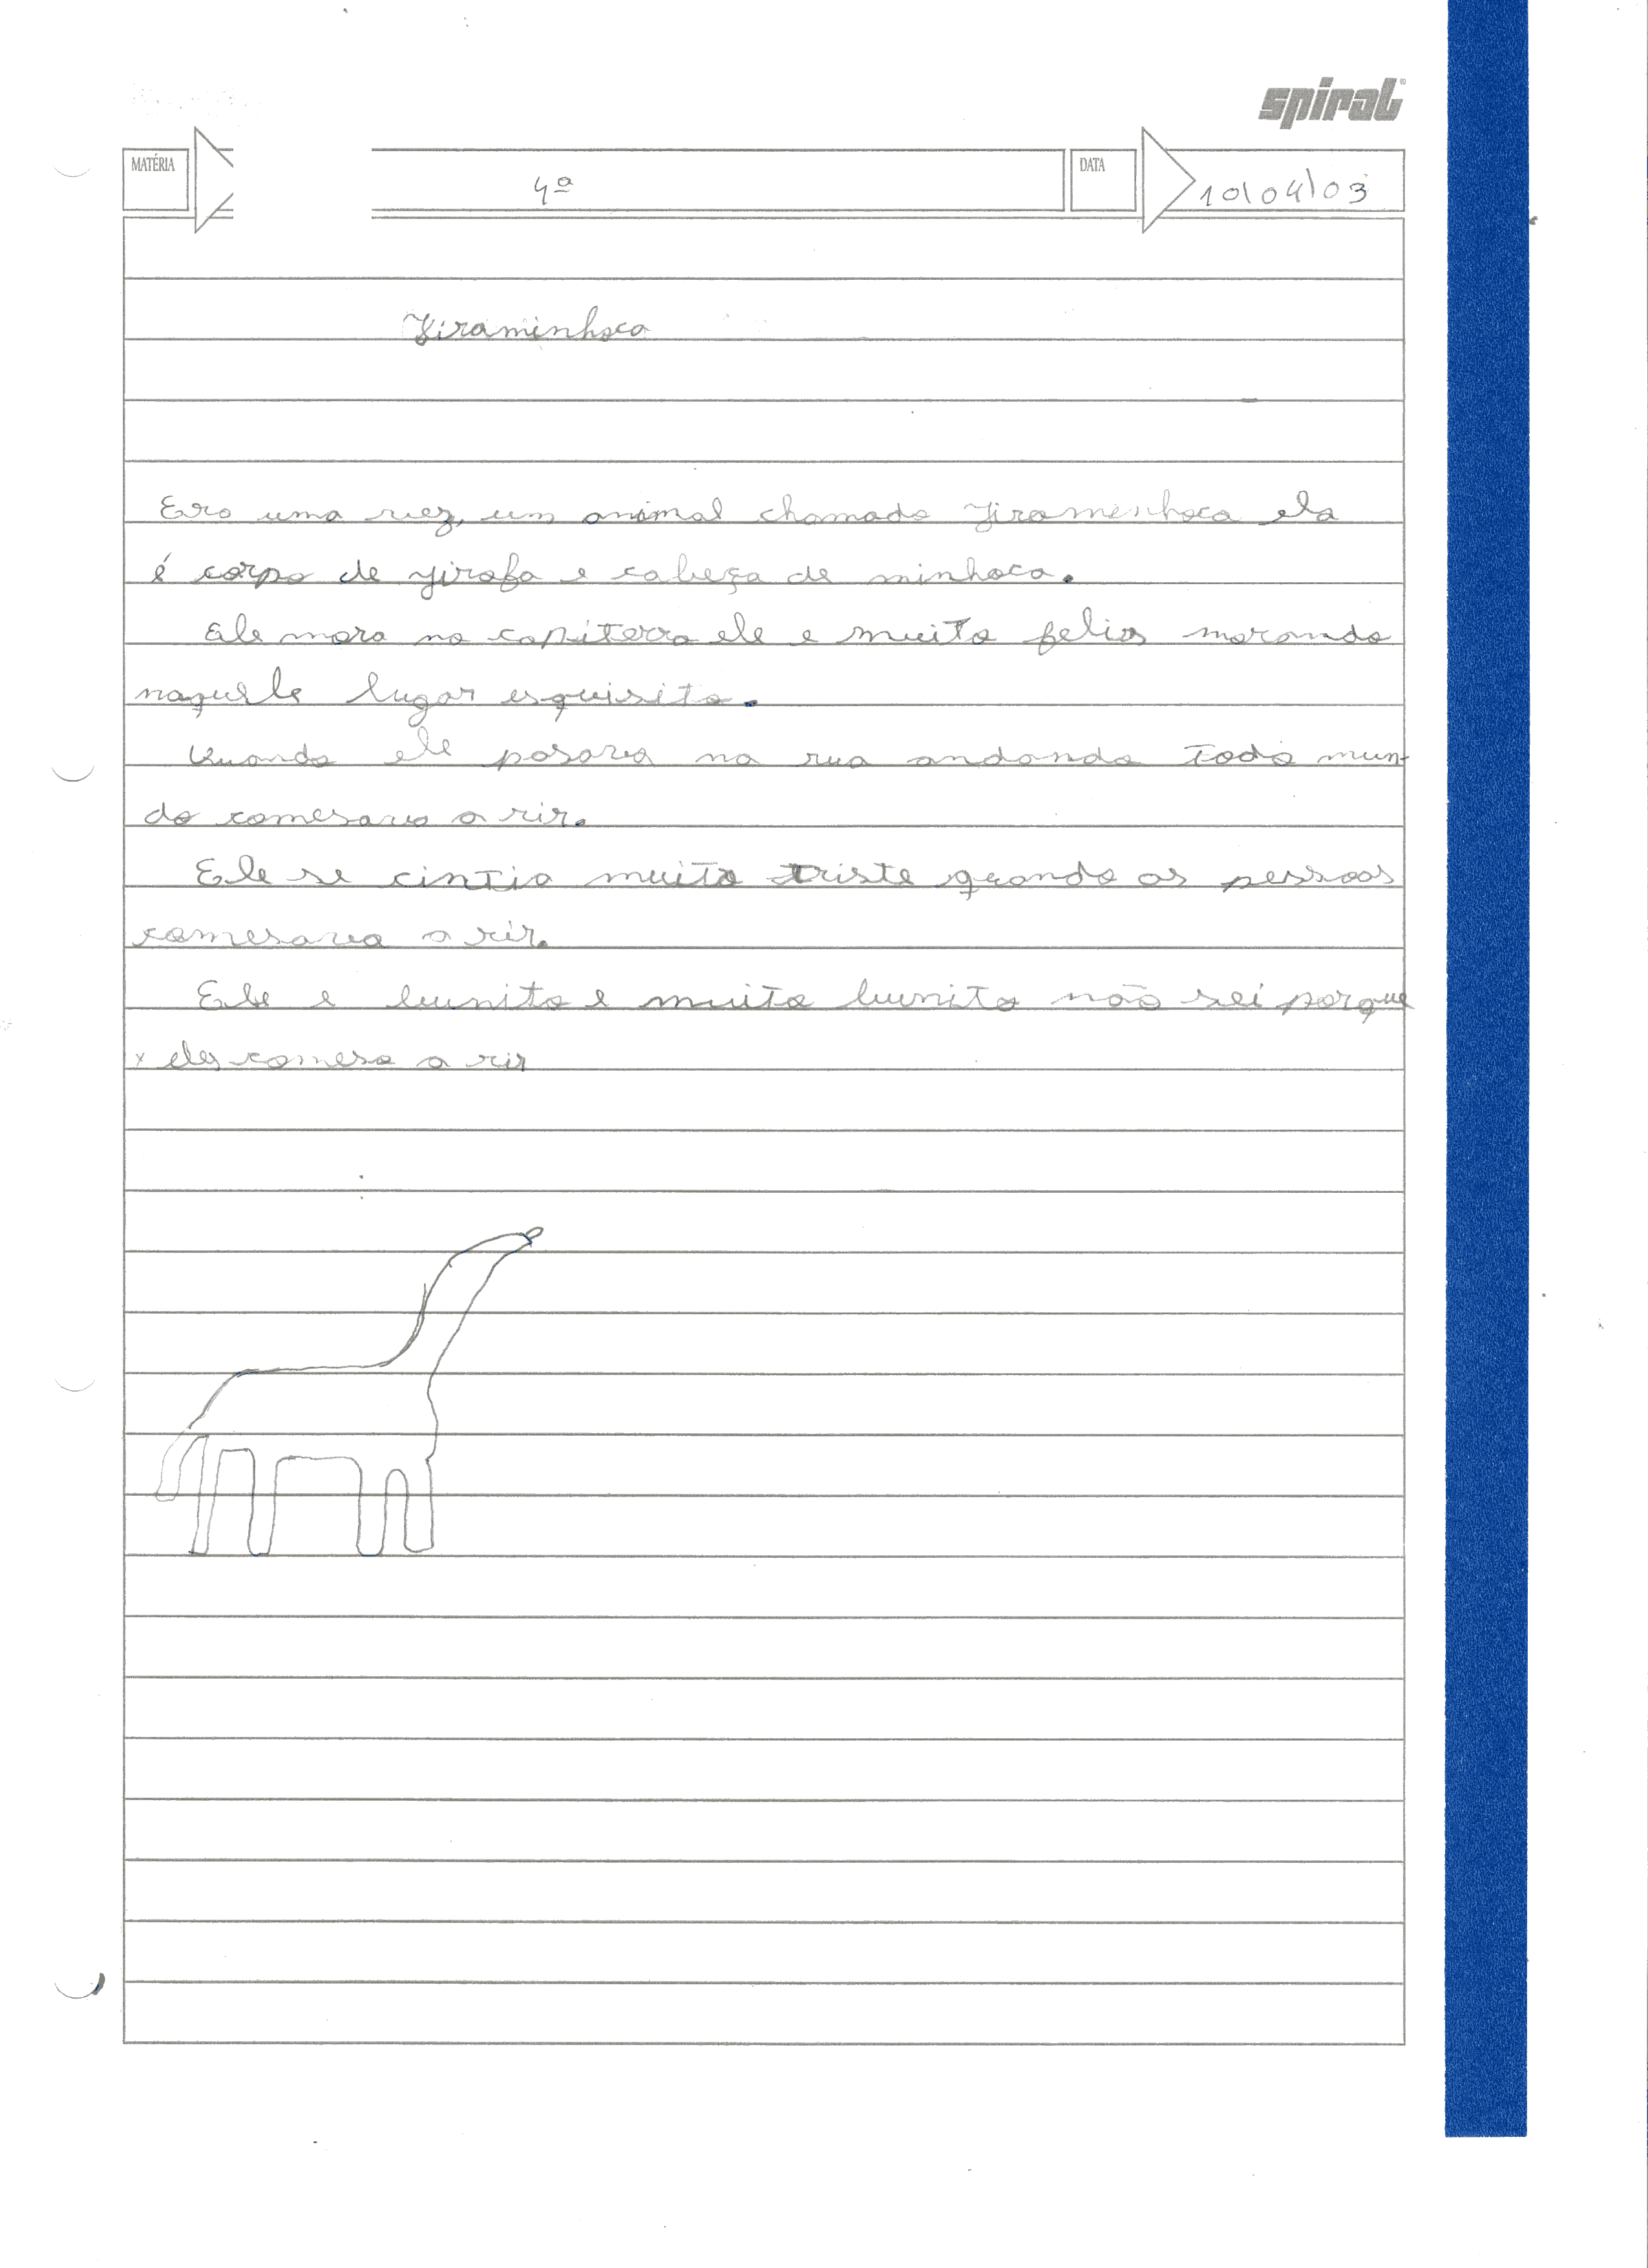 spiral
MATÉRIA 4ª DATA 10/04/03
Jiraminhoca
Era uma vez, um animal chamado Jiraminhoca ela
é corpo de jirafa e cabeça de minhoca.
Ele mora na capiterra ele e muito felis morando
naquele lugar esquisito.
Quando ele pasava na rua andando todo mun-
do comesava a rir.
Ele se cintia muito triste quando as pessoas
comesava a rir.
Ele e bunito e muito bunito não sei porque
x eles comesa a rir